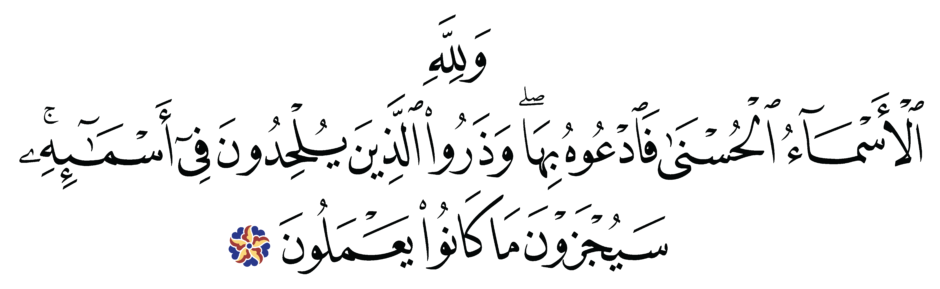 وَلِلَّهِ
ٱلْأَسْمَآءُ ٱلْحُسْنَىٰ فَٱدْعُوهُ بِهَا ۖ وَذَرُوا۟ ٱلَّذِينَ يُلْحِدُونَ فِىٓ أَسْمَـٰٓئِهِۦ ۚ
سَيُجْزَوْنَ مَا كَانُوا۟ يَعْمَلُونَ